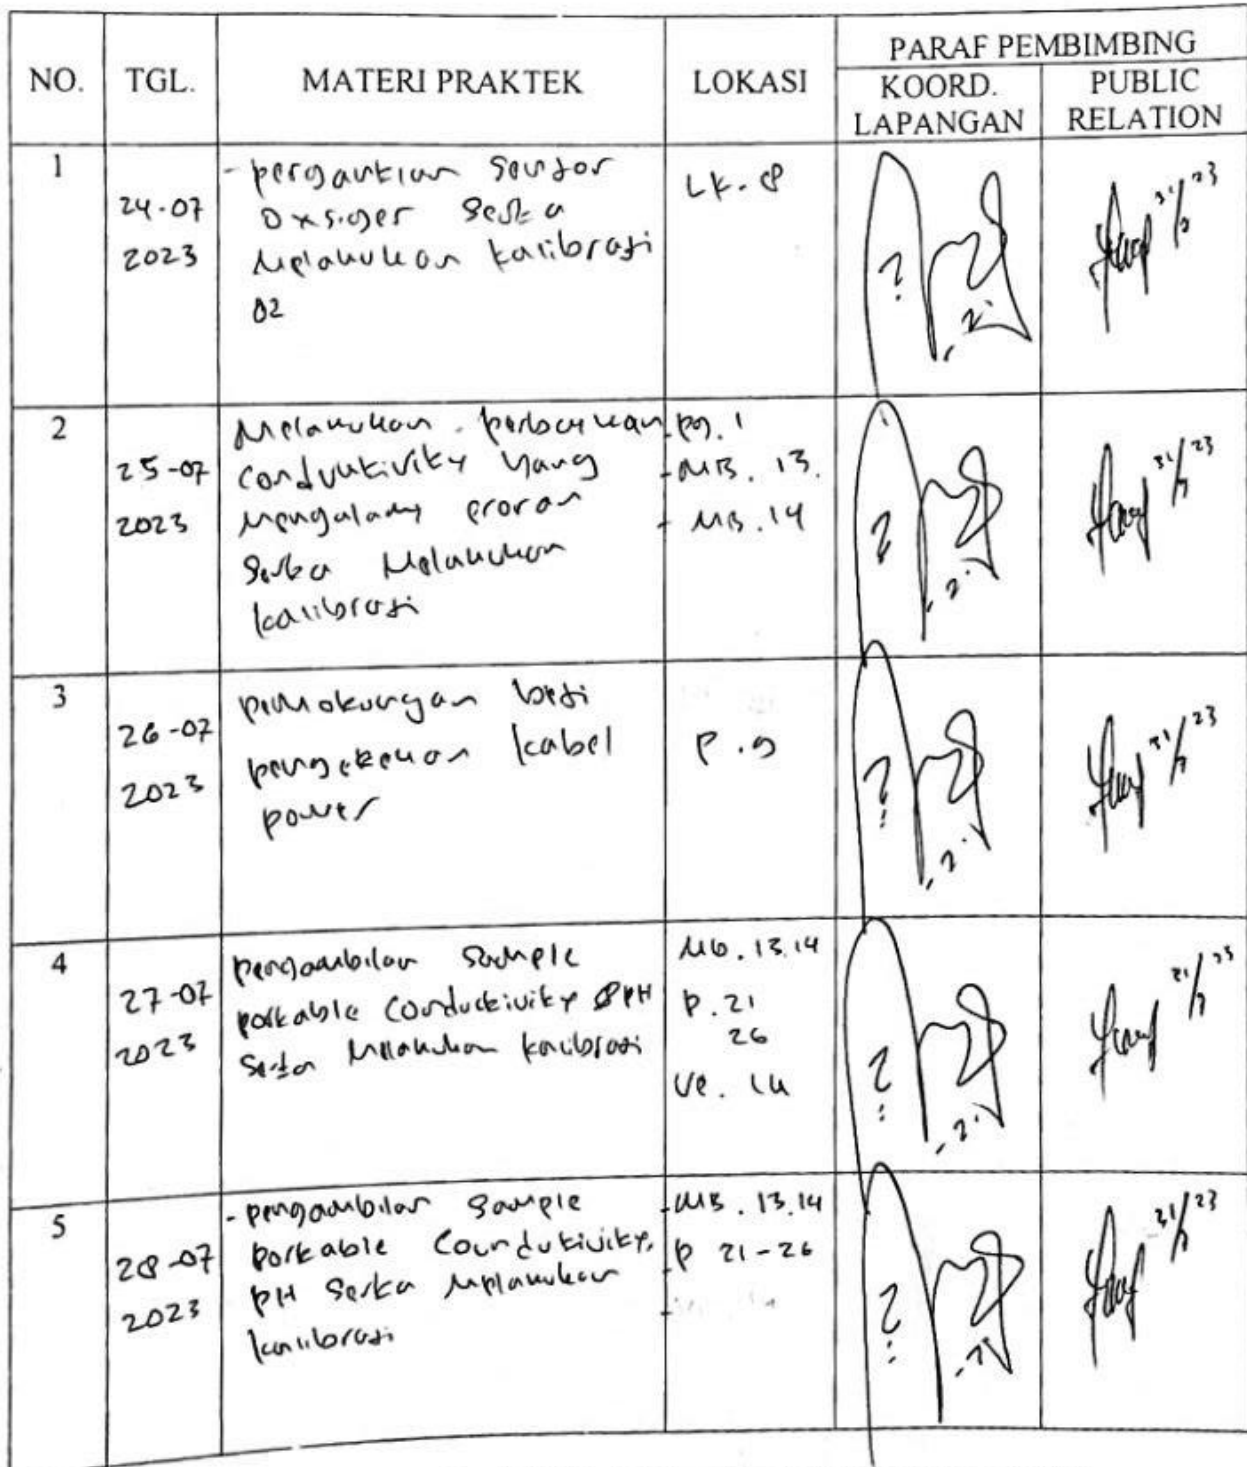 NO. TGL. MATERI PRAKTEK LOKASI PARAF PEMBIMBING
KOORD. LAPANGAN PUBLIC RELATION
1
24-07
2023
- pergantian Sensor
Oxsiger Serta
Melakukan kalibrasi
O2
LK. 8
31/7 23
2
25-07
2023
Melakukan perbaikan
Conduktivity yang
Mengalami eroran
Serta Melakukan
kalibrasi
pg. 1
- MB. 13.
- MB. 14
31/7 23
3
26-07
2023
pemotongan besi
pengekekan kabel
power
P. 9
31/7 23
4
27-07
2023
pengambilan Sample
portable Conductivity & PH
Serta Melakukan kalibrasi
MB. 13.14
P. 21
26
31/7 23
5
28-07
2023
- pengambilan Sample
portable Coundutivity,
pH Serta Melakukan
kalibrasi
- MB. 13.14
P 21-26
31/7 23